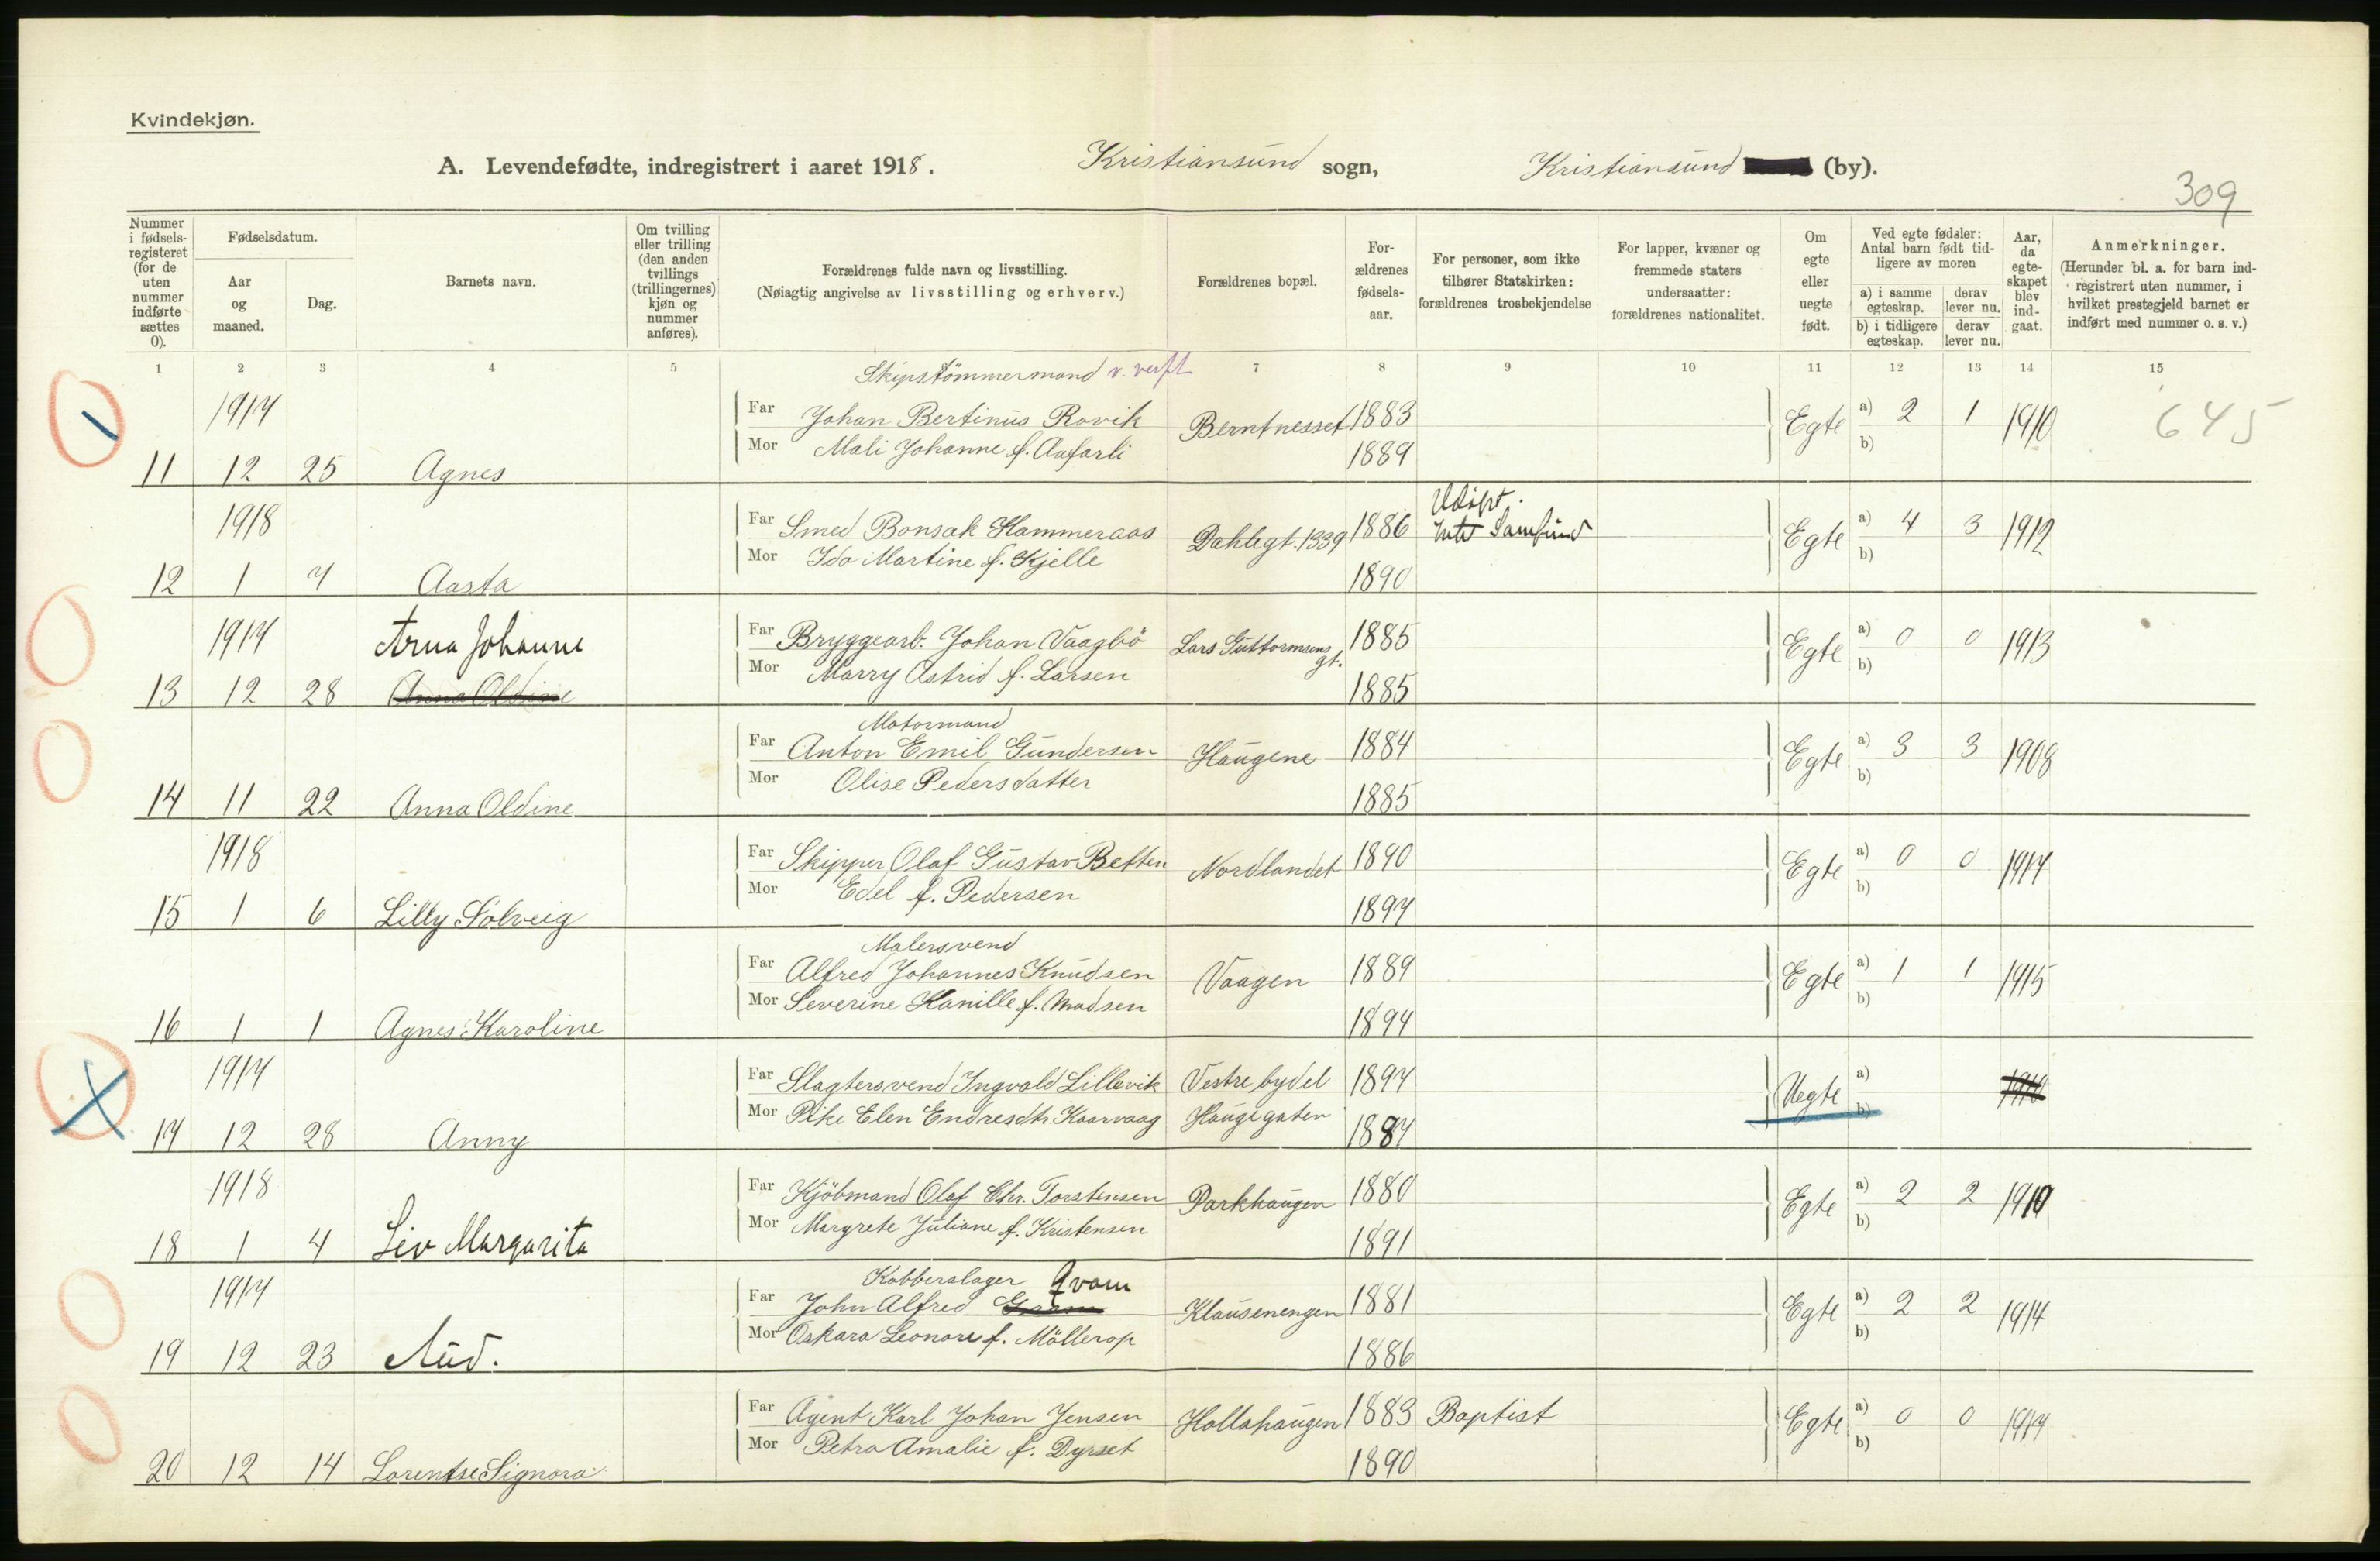 Kvindekjøn.
A. Levendefødte, indregistrert i aaret 1918. Kristiansund sogn, Kristiansund (by).
309
Nummer i fødselsregisteret (for de uten nummer indførte sættes 0).
Fødselsdatum.
Aar og maaned.
Dag.
Barnets navn.
Om tvilling eller trilling (den anden tvillings (trillingernes) kjøn og nummer anføres).
Forældrenes fulde navn og livsstilling.
(Nøiagtig angivelse av livsstilling og erhverv.)
Forældrenes bopæl.
Forældrenes fødselsaar.
For personer, som ikke tilhører Statskirken: forældrenes trosbekjendelse
For lapper, kvæner og fremmede staters undersaatter: forældrenes nationalitet.
Om egte eller uegte født.
Ved egte fødsler: Antal barn født tidligere av moren
a) i samme egteskap. derav lever nu.
b) i tidligere egteskap. derav lever nu.
Aar, da egteskapet blev indgaat.
Anmerkninger.
(Herunder bl. a. for barn indregistrert uten nummer, i hvilket prestegjeld barnet er indført med nummer o. s. v.)
1 2 3 4 5 7 8 9 10 11 12 13 14 15
Skipstömmermand v. verft
1917 Far Johan Bertinus Rovik Berntnesset 1883 Egte a) 2 1 1910 645
Mor Mali Johanne f. Aafarli 1889 b)
11 12 25 Agnes
Udöpt.
1918 Far Smed Bonsak Hammeraas Dahlegt. 1339 1886 Samfund Egte a) 4 3 1912
Mor Ida Martine f. Kjelle 1890 b)
12 1 7 Aasta
1917 Arna Johanne Far Bryggearb. Johan Vaagbö Lars Guttormsens gt. 1885 Egte a) 0 0 1913
Mor Marry Astrid f. Larsen 1885 b)
13 12 28 Anna Oldine
Motormand
Far Anton Emil Gundersen Haugene 1884 Egte a) 3 3 1908
Mor Olise Pedersdatter 1885 b)
14 11 22 Anna Oldine
1918 Far Skipper Olaf Gustav Betten Nordlandet 1890 Egte a) 0 0 1917
Mor Edel f. Pedersen 1897 b)
15 1 6 Lilly Solveig
Malersvend
Far Alfred Johannes Knudsen Vaagen 1889 Egte a) 1 1 1915
Mor Severine Kanille f. Madsen 1894 b)
16 1 1 Agnes Karoline
1917 Far Slagtersvend Ingvald Lillevik Vestre bydel 1897 Uegte a) 1910
Mor Pike Elen Endresdtr. Kaarvaag Haugegaten 1887 b)
17 12 28 Anny
1918 Far Kjöbmand Olaf Chr. Torstensen Parkhaugen 1880 Egte a) 2 2 1910
Mor Margrete Juliane f. Kristensen 1891 b)
18 1 4 Liv Margarita
Kobberslager Qvam
1917 Far John Alfred Klausenengen 1881 Egte a) 2 2 1914
Mor Oskara Leonore f. Möllerop 1886 b)
19 12 23 Aud.
Far Agent Karl Johan Jensen Hollahaugen 1883 Baptist Egte a) 0 0 1917
Mor Petra Amalie f. Dyrset 1890 b)
20 12 14 Lorentse Signora